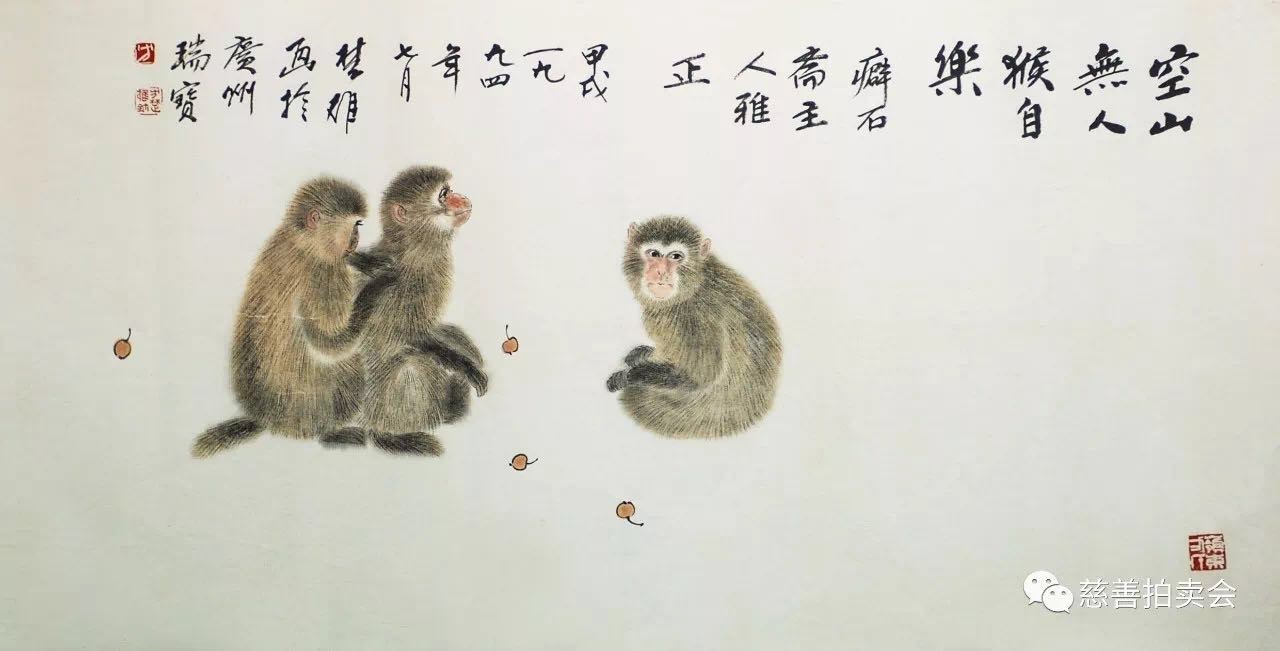 空山
無人
猴自
樂
癖石
齋主
人雅
正
甲戌
一九
九四
年
七月
楚雄
画於
廣州
瑞寶
慈善拍卖会